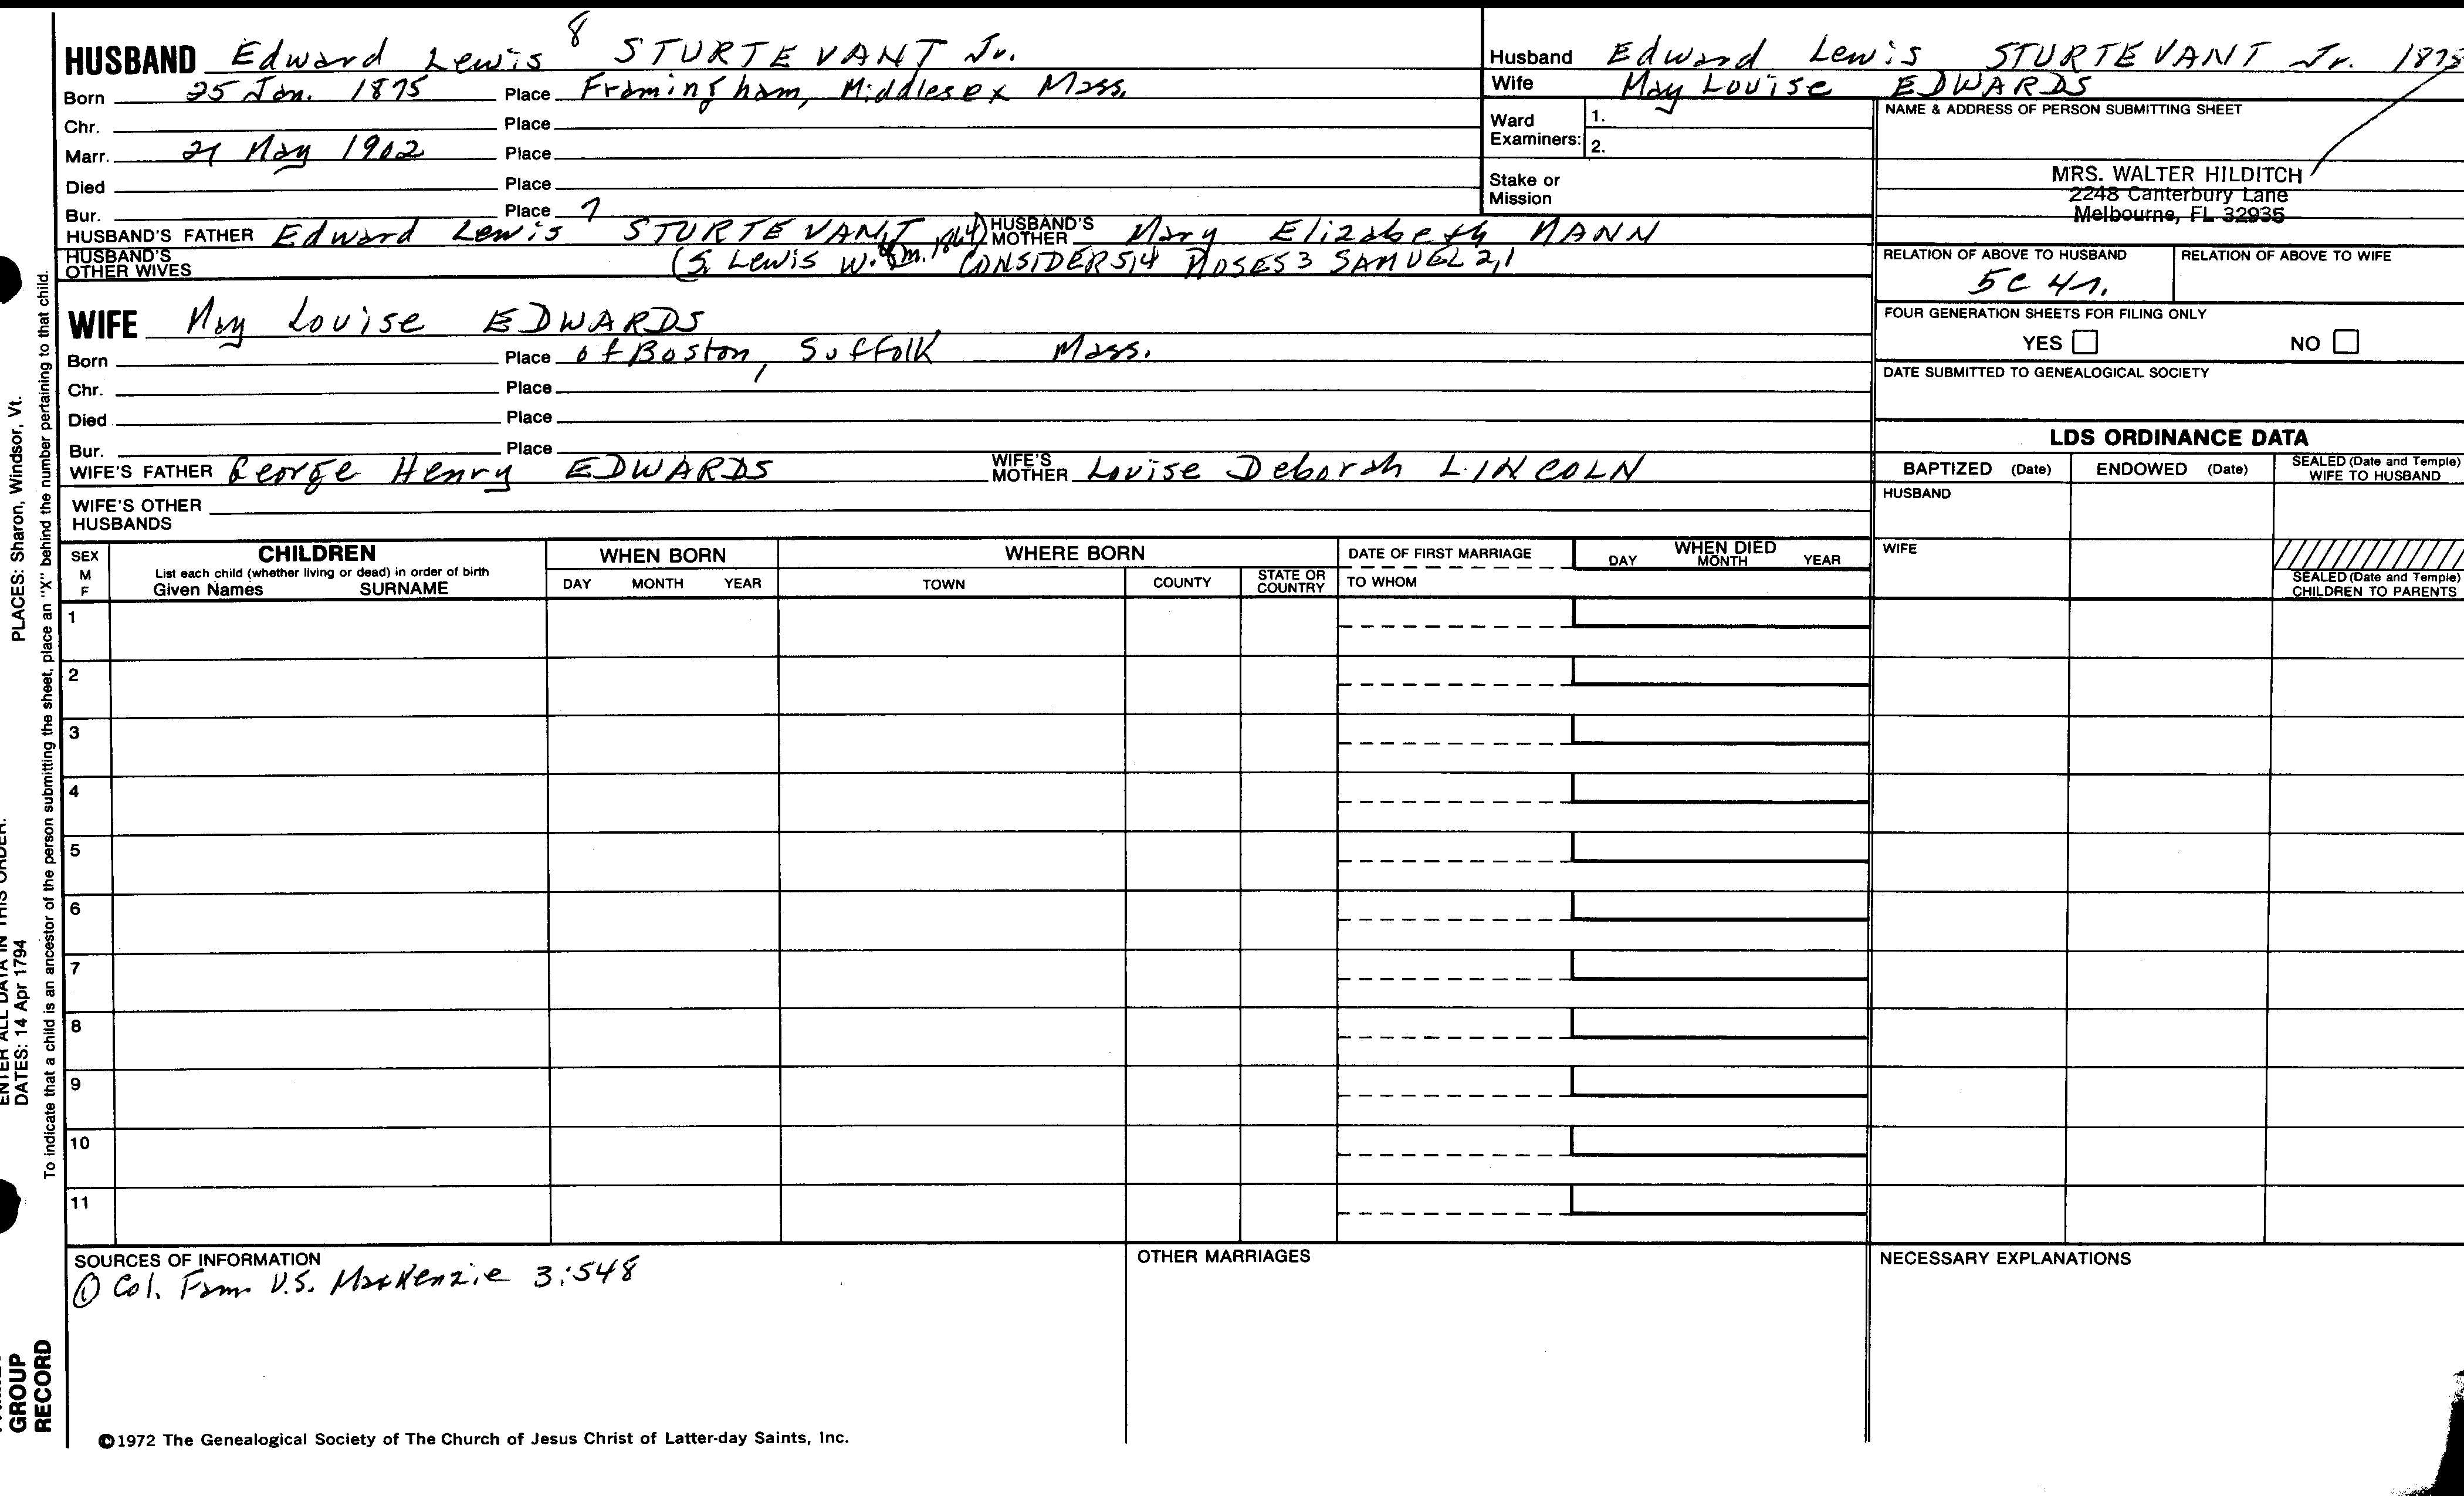 HUSBAND Edward Lewis 8 STURTEVANT Jr.
Born 25 Jan. 1875 Place Framingham, Middlesex Mass.
Chr. Place
Marr. 21 May 1902 Place
Died Place
Bur. Place
HUSBAND'S FATHER Edward Lewis 7 STURTEVANT (m. 1864) HUSBAND'S MOTHER Mary Elizabeth MANN
HUSBAND'S OTHER WIVES (S. Lewis W. 6 CONSIDER 5,4 MOSES 3 SAMUEL 2,1
WIFE May Louise EDWARDS
Born Place of Boston, Suffolk Mass.
Chr. Place
Died Place
Bur. Place
WIFE'S FATHER George Henry EDWARDS WIFE'S MOTHER Louise Deborah LINCOLN
WIFE'S OTHER HUSBANDS
Husband Edward Lewis STURTEVANT Jr. 1875
Wife May Louise EDWARDS
Ward Examiners: 1.
2.
Stake or Mission
NAME & ADDRESS OF PERSON SUBMITTING SHEET
MRS. WALTER HILDITCH
2248 Canterbury Lane
Melbourne, FL 32935
RELATION OF ABOVE TO HUSBAND RELATION OF ABOVE TO WIFE
5C 4r.
FOUR GENERATION SHEETS FOR FILING ONLY
YES NO
DATE SUBMITTED TO GENEALOGICAL SOCIETY
LDS ORDINANCE DATA
BAPTIZED (Date) ENDOWED (Date) SEALED (Date and Temple) WIFE TO HUSBAND
HUSBAND
WIFE
SEALED (Date and Temple) CHILDREN TO PARENTS
SEX M F CHILDREN WHEN BORN WHERE BORN DATE OF FIRST MARRIAGE WHEN DIED
List each child (whether living or dead) in order of birth
Given Names SURNAME DAY MONTH YEAR TOWN COUNTY STATE OR COUNTRY TO WHOM DAY MONTH YEAR
1
2
3
4
5
6
7
8
9
10
11
SOURCES OF INFORMATION OTHER MARRIAGES NECESSARY EXPLANATIONS
① Col. Fam. U.S. MacKenzie 3:548
©1972 The Genealogical Society of The Church of Jesus Christ of Latter-day Saints, Inc.
GROUP
RECORD
ENTER ALL DATA IN THIS ORDER:
DATES: 14 Apr 1794 PLACES: Sharon, Windsor, Vt.
To indicate that a child is an ancestor of the person submitting the sheet, place an "X" behind the number pertaining to that child.